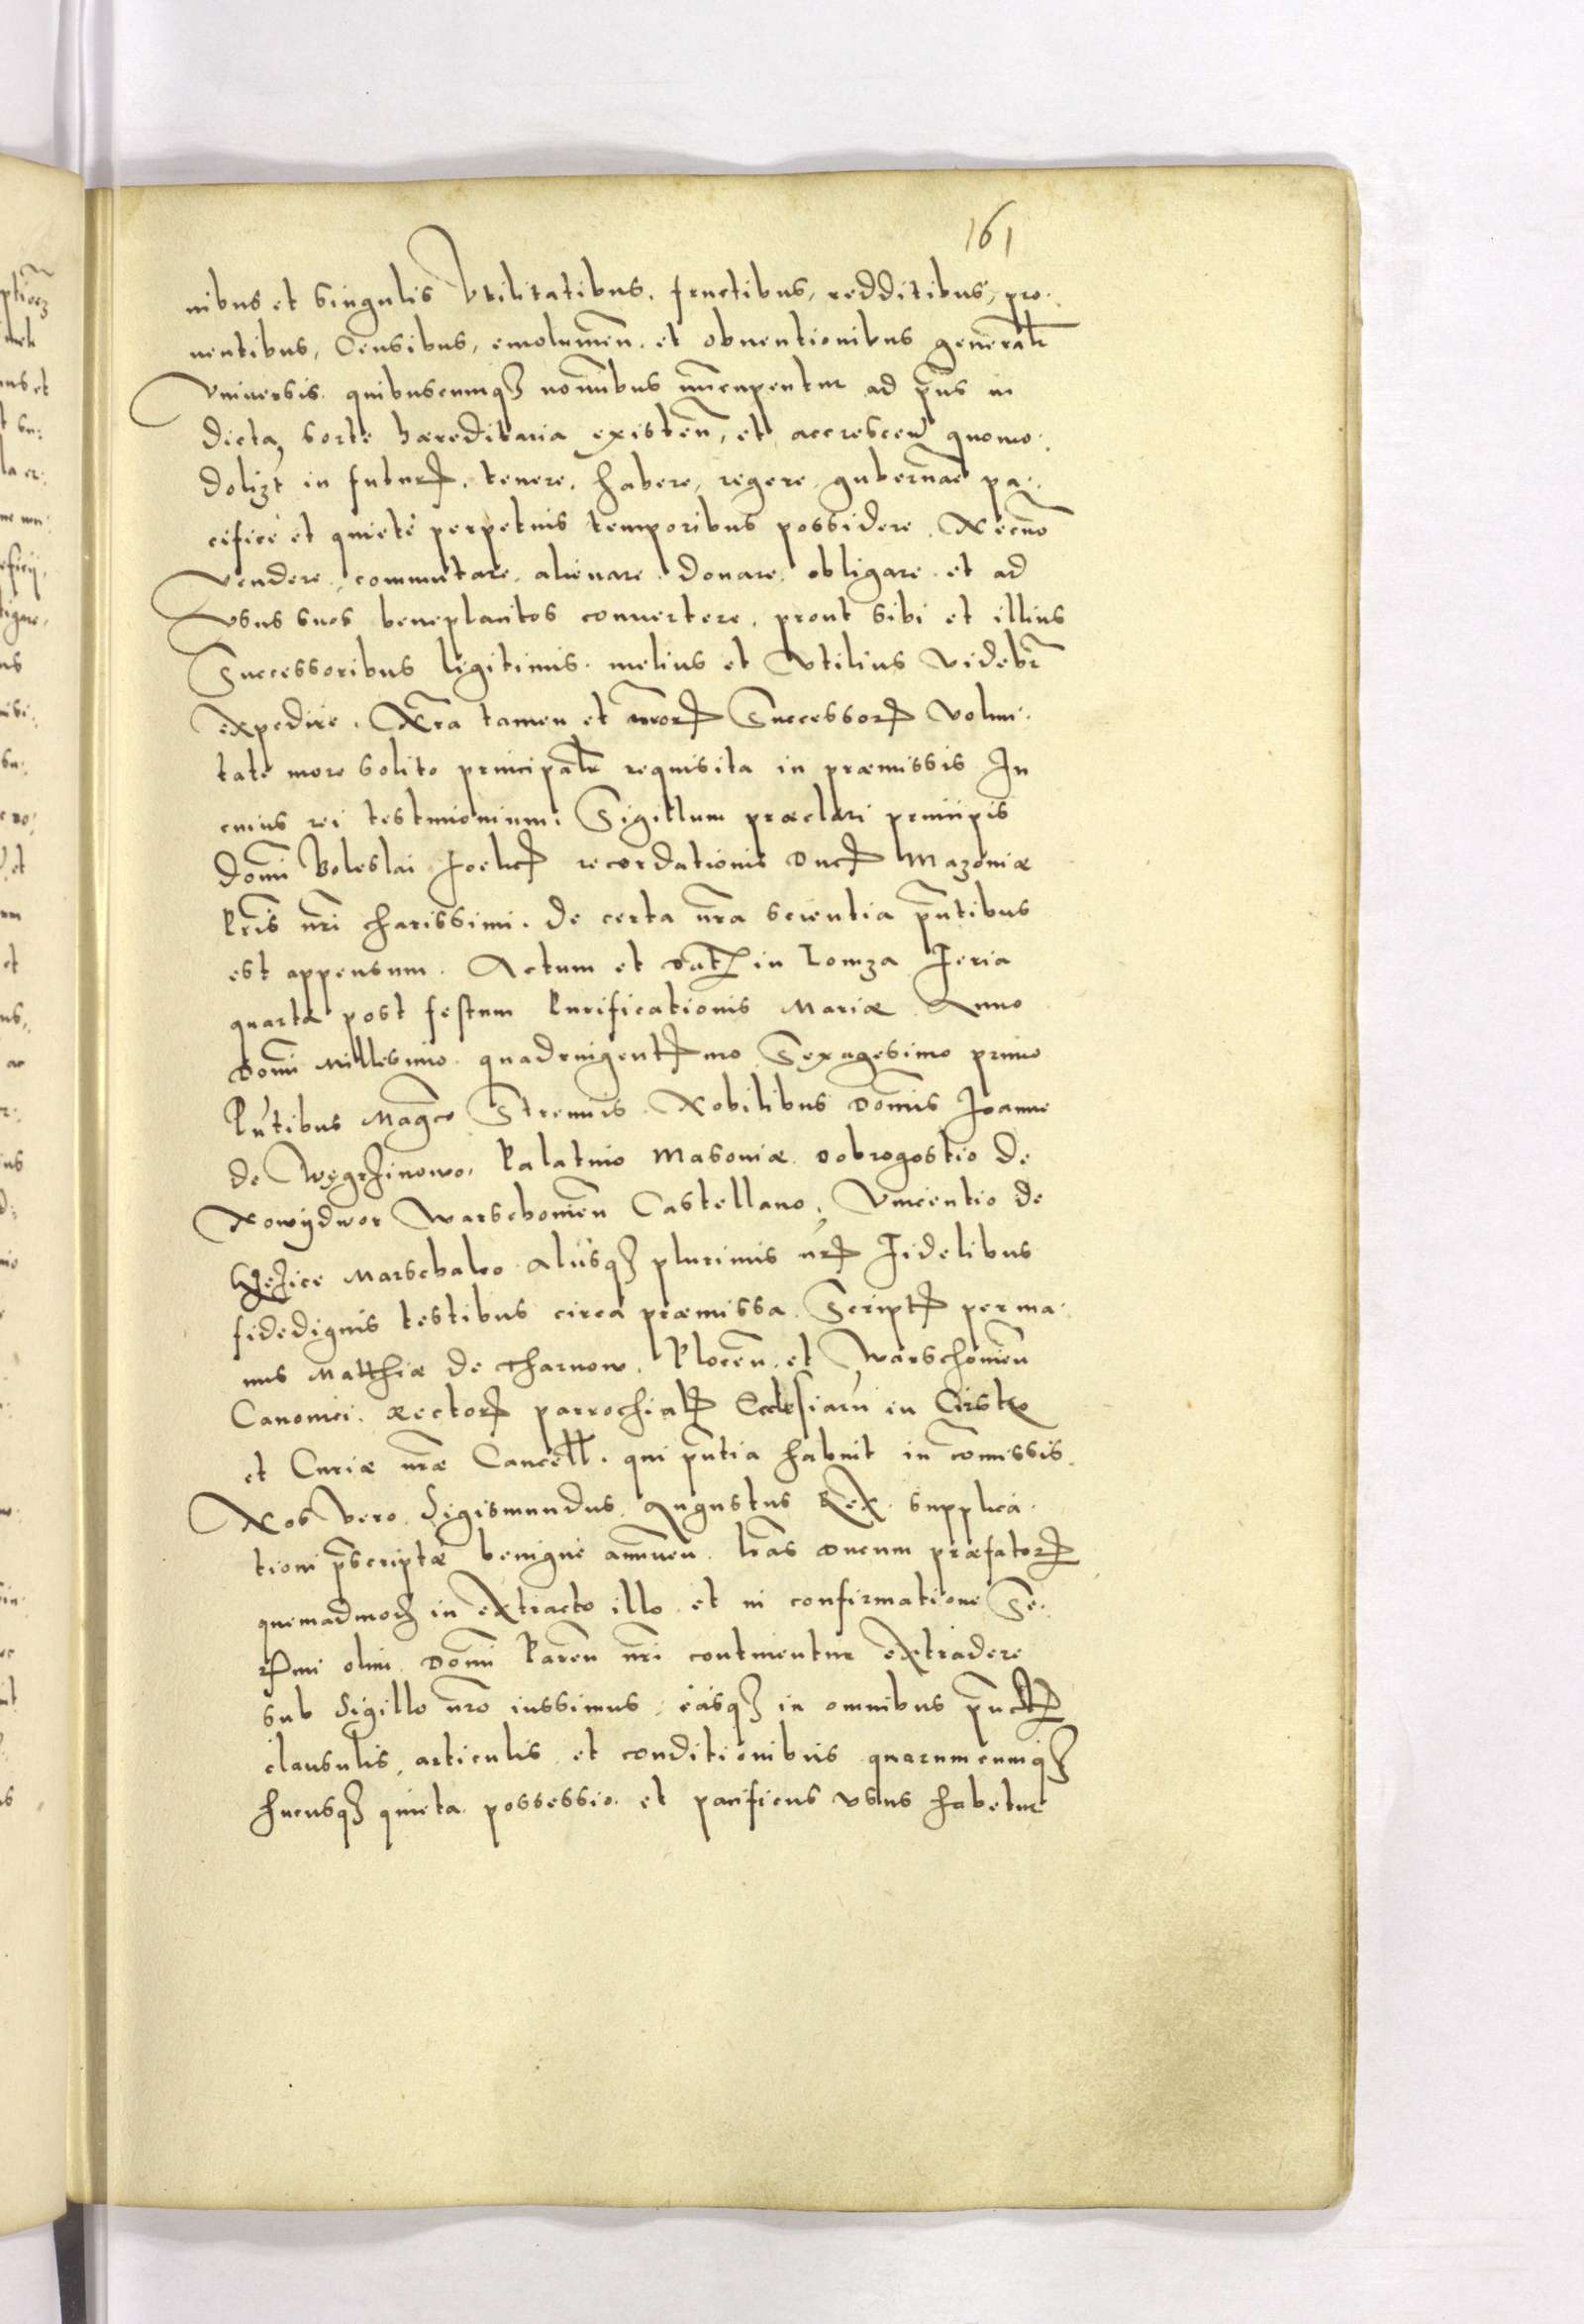 161
nibus et singulis Vtilitatibus, fructibus, redditibus, pro.
uentibus, Censibus, emolumen̄. et obuentionibus generalr̄
Vniuersis. quibuscumqꝫ nominibus nuncupentur ad p̄ns in
dicta sorte haereditaria existen̄, et accrescen̄ quomo:
dolizt in futurꝭ, tenere, habere, regere, gubernare pa:
cificè et quietè perpetuis temporibus possidere. Necnō
Vendere, commutare, alienare. donare. obligare. et ad
Vsus suos beneplacitos conuertere. prout sibi et illius
Successoribus ligitimis. melius et Vtilius Videbr̄
expedire. Nr̄a tamen et nr̄orꝭ Successorꝭ Volun:
tate more solito principalr̄ requisita in praemissis In
cuius rei testimonium. Sigillum praeclari principis
Domī Boleslai Foelicꝭ recordationis Ducꝭ Mazoniae
Pr̄is nr̄i charissimi. de certa nr̄a scientia p̄ntibus
est appensum. Actum et Datꝭ in Lomza Feria
quarta post festum Purificationis Mariae Anno
Domī Millesimo quadringentꝭmo Sexagesimo primo
Pn̄tibus Mag̃co Strenuis Nobilibus Domīs Joanne
de Węgrzinowo, Palatino Masoniae Dobrogostio de
Nowÿdwor Warschouien̄ Castellano, Vincentio de
Marschalco Alijsqꝫ plurimis nr̄ꝭ Fidelibus
fidedignis testibus circa praemissa. Scriptꝭ per ma:
nus Matthiae de Tharnow. Plocen̄. et Warschouien̄
Canonici. Rectorꝭ parrochialꝭ Ecclesiarū in
et Curiae nr̄ae Cancell. qui p̄ntia habuit in com̄issis.
Nos Vero Sigismundus Augustus Rex. supplica:
tioni p̄scriptae benignè annuen̄. lr̄as Ducum praefatorꝭ
quemadmodꝫ in extracto illo et in confirmatione Se:
rꝭmi olim Domī Paren̄ nr̄i continentur extradere
sub Sigillo nr̄o iussimus, easqꝫ in omnibus punctꝭ
clausulis, articulis et conditionibus quarumcumqꝫ
hucusqꝫ quieta possessio. et pacificus vsus habetur